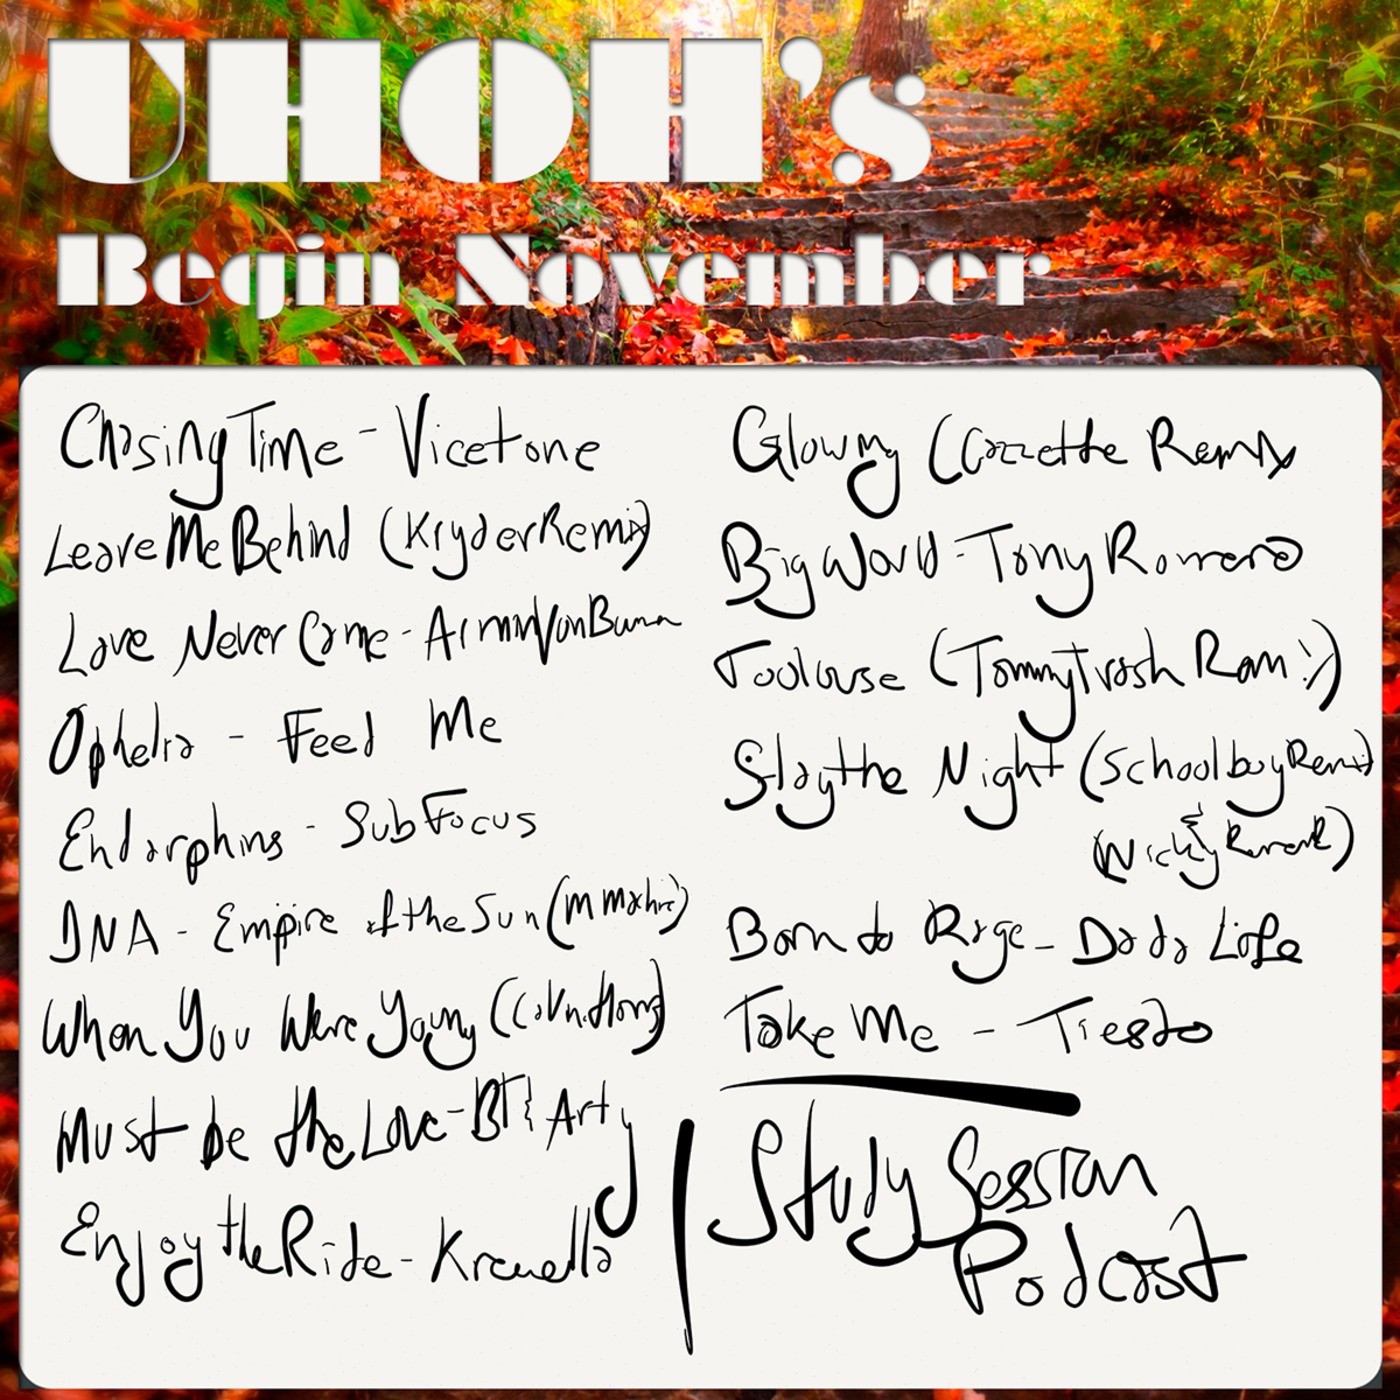 UHOH's
Begin November
Chasing Time - Vicetone
Leave Me Behind (Kryder Remix)
Love Never Came - Armin Van Buuren
Ophelia - Feed Me
Endorphins - Sub Focus
DNA - Empire of the Sun
When You Were Young
Must be the Love - BT & Arty
Enjoy the Ride - Krewella
Glowing (Cazzette Remix
Big World - Tony Romero
Toulouse (Tommy Trash Rem:)
Slay the Night (Schoolboy Remix)
(Nicky &
Born to Rage - Dada Life
Take Me - Tiesto
Study Session
Podcast